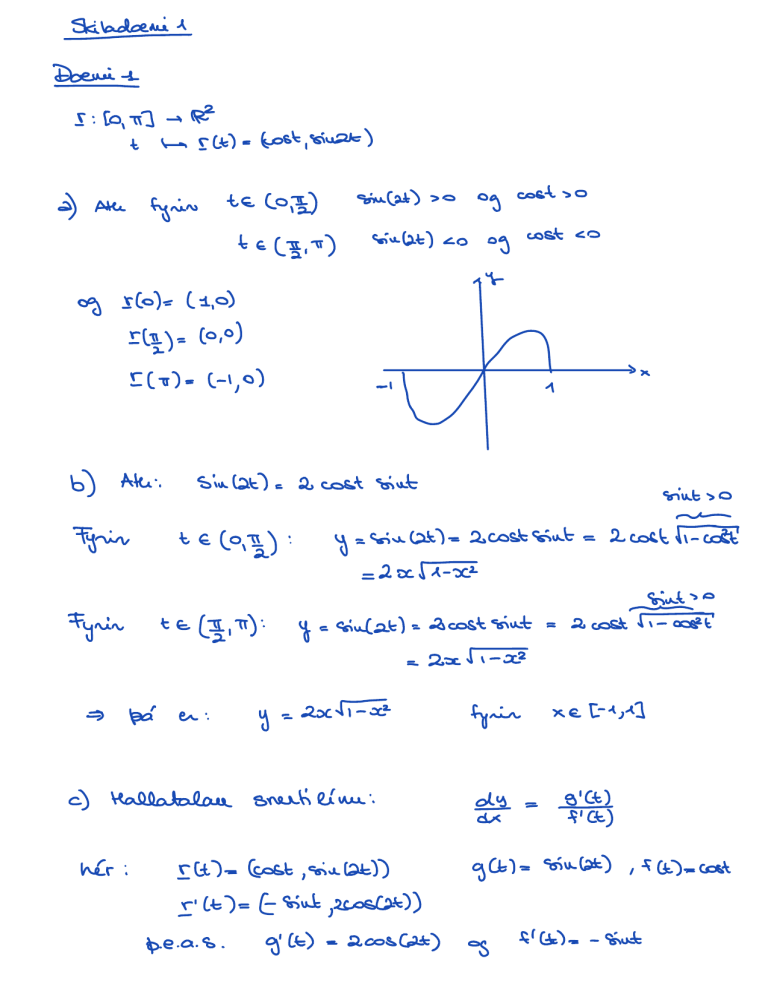 Skiladæmi 1
Dæmi 1
r : [0, π] → ℝ²
t ↦ r(t) = (cost, sin2t)
a) Ath fyrir t ∈ (0, π/2) sin(2t) > 0 og cost > 0
t ∈ (π/2, π) sin(2t) < 0 og cost < 0
og r(0) = (1,0)
r(π/2) = (0,0)
r(π) = (-1,0)
y
-1 1 x
b) Ath: sin(2t) = 2 cost sint
sint > 0
Fyrir t ∈ (0, π/2) : y = sin(2t) = 2cost sint = 2 cost √(1-cos²t)
= 2x√(1-x²)
sint > 0
Fyrir t ∈ (π/2, π) : y = sin(2t) = 2cost sint = 2 cost √(1-cos²t)
= 2x√(1-x²)
⇒ þá er : y = 2x√(1-x²) fyrir x ∈ [-1,1]
c) Hallatalan snertilínu : dy/dx = g'(t)/f'(t)
hér : r(t) = (cost, sin(2t)) g(t) = sin(2t) , f(t) = cost
r'(t) = (- sint, 2cos(2t))
þ.e.a.s. g'(t) = 2cos(2t) og f'(t) = - sint